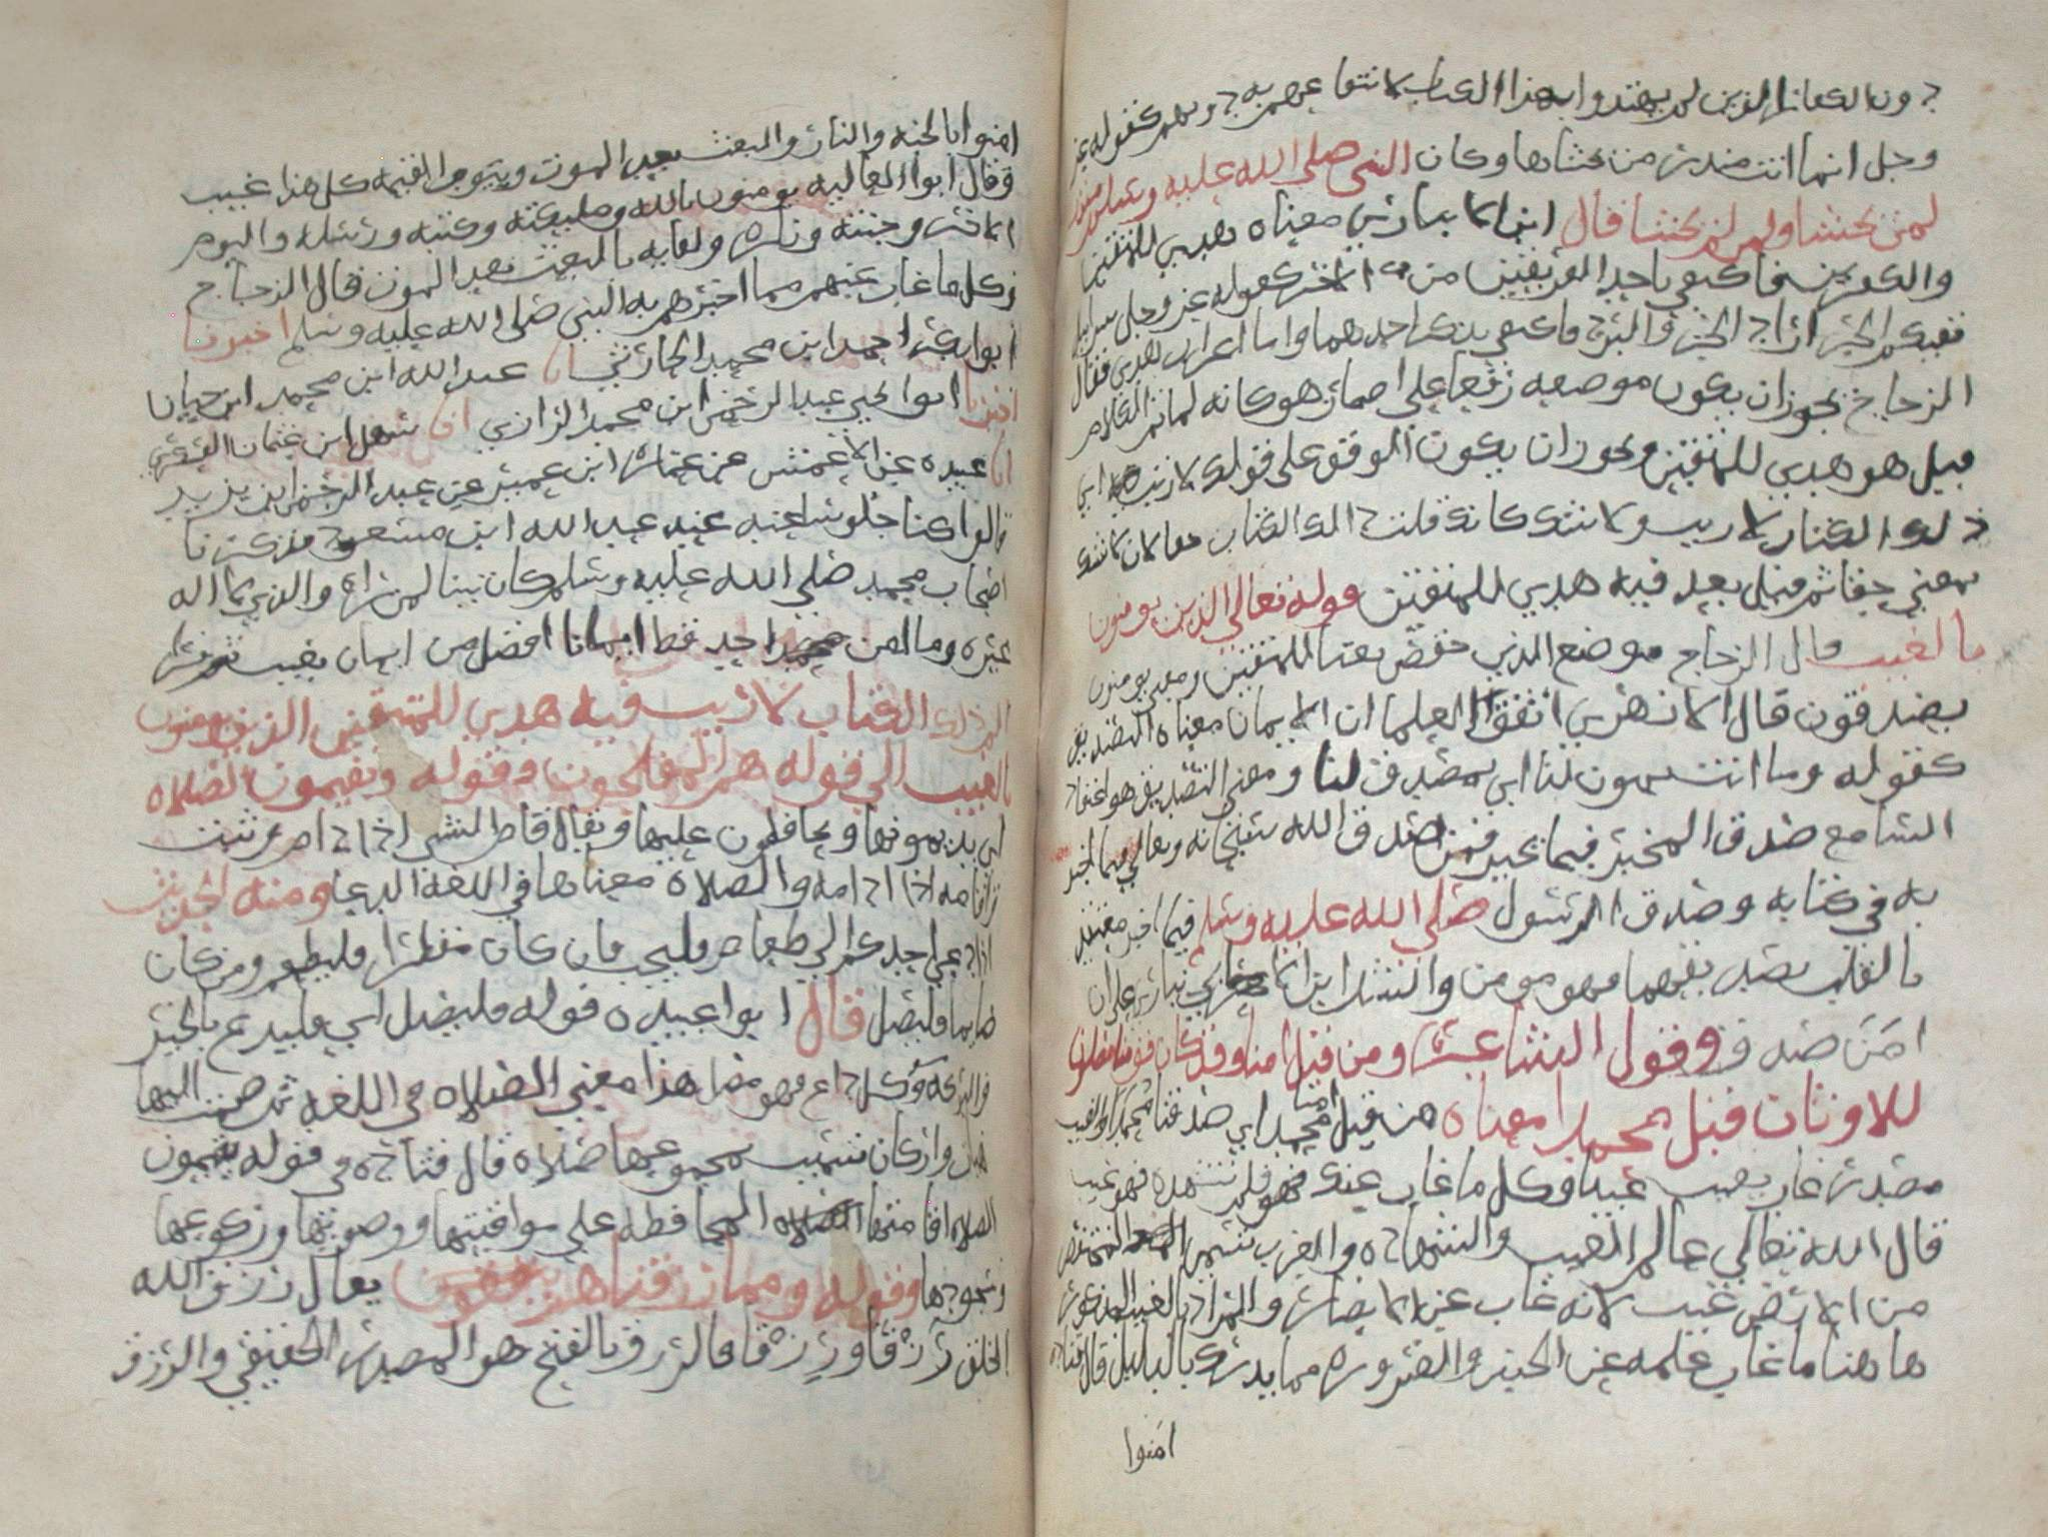 دون الكفار الذين لم يهتدوا بهذا الكتاب لانتفاعهم به دونهم كقوله عز
وجل انما انت منذر من يخشاها وكان النبي صلى الله عليه وسلم منذر
لمن يخشا ولمن لم يخشا قال ابن الانباري معناه هدى للمتقين
والكفرين فاكتفي باحد الفريقين من الاخر كقوله عز وجل سرابيل
تقيكم الحر اراد الحر والبرد فاكتفي بذكر احدهما واما اعراب هدى فقال
الزجاج يجوز ان يكون موضعه رفعا على اضمار هو كانه لما تم الكلام
قيل هو هدى للمتقين ويجوز ان يكون الوقف على قولك لا ريب اي
ذلك الكتاب لا ريب ولا شك كانك قلت ذلك الكتاب حقا لان لا شك
بمعني حقا ثم قيل بعد فيه هدى للمتقين قوله تعالي الذين يومنون
بالغيب قال الزجاج موضع الذين خفض نعتا للمتقين ومعني يومنون
يصدقون قال الازهري اتفق العلما ان الايمان معناه التصديق
كقوله وما انت بمومن لنا اي بمصدق لنا ومعني التصديق هو اعتقاد
السامع صدق المخبر فيما يخبر فمن صدق الله سبحانه وتعالي فيما اخبر
به في كتابه وصدق الرسول صلى الله عليه وسلم فيما اخبر معتقد
بالقلب تصديقهما فهو مومن وانشد ابن الانباري على ان
امن صدق وقول الشاعر ومن قبل امنا وقد كان قومنا يصلون
للاوثان قبل محمدا معناه من قبل امنا محمدا اي صدقنا محمدا والغيب
مصدر غاب يغيب غيبا وكل ما غاب عنك فلم تشهده فهو غيب
قال الله تعالي عالم الغيب والشهاده والعرب تسمي المنخفض
من الارض غيب لانه غاب عن الابصار والمراد بالغيب المذكور
هاهنا ما غاب علمه عن الحس والضروره مما يدرك بالدليل قال قتاده
امنوا
امنوا بالجنه والنار والبعث بعد الموت ويوم القيمه كل هذا غيب
وقال ابوا العاليه يومنون بالله وملئكته وكتبه ورسله واليوم
الاخر وجنته وناره ولقايه بالبعث بعد الموت قال الزجاج
وكل ما غاب عنهم مما اخبرهم به النبي صلى الله عليه وسلم اخبرنا
ابوا بكر احمد ابن محمد الحارثي انا عبد الله ابن محمد ابن حيان
اخبرنا ابوا يحيي عبد الرحمن ابن محمد الرازي انا سهل ابن عثمان العسكري
انا عبيده عن الاعمش عن عماره ابن عمير عن عبد الرحمن ابن يزيد
قالوا كنا جلوسا عند عبد الله ابن مسعود فذكرنا
اصحاب محمد صلى الله عليه وسلم كان بينا لمن راه والذي لا اله
غيره وما امن احد قط ايمانا افضل من ايمان بغيب ثم قرا
الم ذلك الكتاب لا ريب فيه هدى للمتقين الذين يومنون
بالغيب الى قوله هم المفلحون وقوله ويقيمون الصلاه
اي يديمونها ويحافظون عليها ويقال قام الشي اذا دام وثبت
واقامه اذا ادامه والصلاه معناها في اللغه الدعا ومنه الحديث
اذا دعي احدكم الى طعام فليجب فان كان مفطرا فليطعم ومن كان
صايما فليصل قال ابوا عبيده قوله فليصل اي فليدع بالخير
والبركه وكل داع فهو مصل هذا معني الصلاه في اللغه ثم ضمت اليها
هيات واركان سميت بمجموعها صلاه قال قتاده في قوله يقيمون
الصلاه اقامتها المحافظه على مواقيتها ووضوئها وركوعها
وسجودها وقوله ومما رزقناهم ينفقون يقال رزق الله
الخلق رزقا ورزقا فالرزق بالفتح هو المصدر الحقيقي والرزق